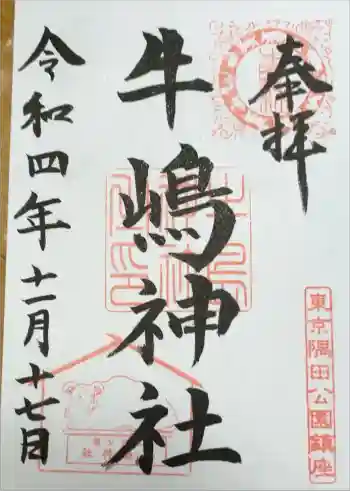 奉拝
東京隅田公園鎮座
牛嶋神社
令和四年十一月十七日